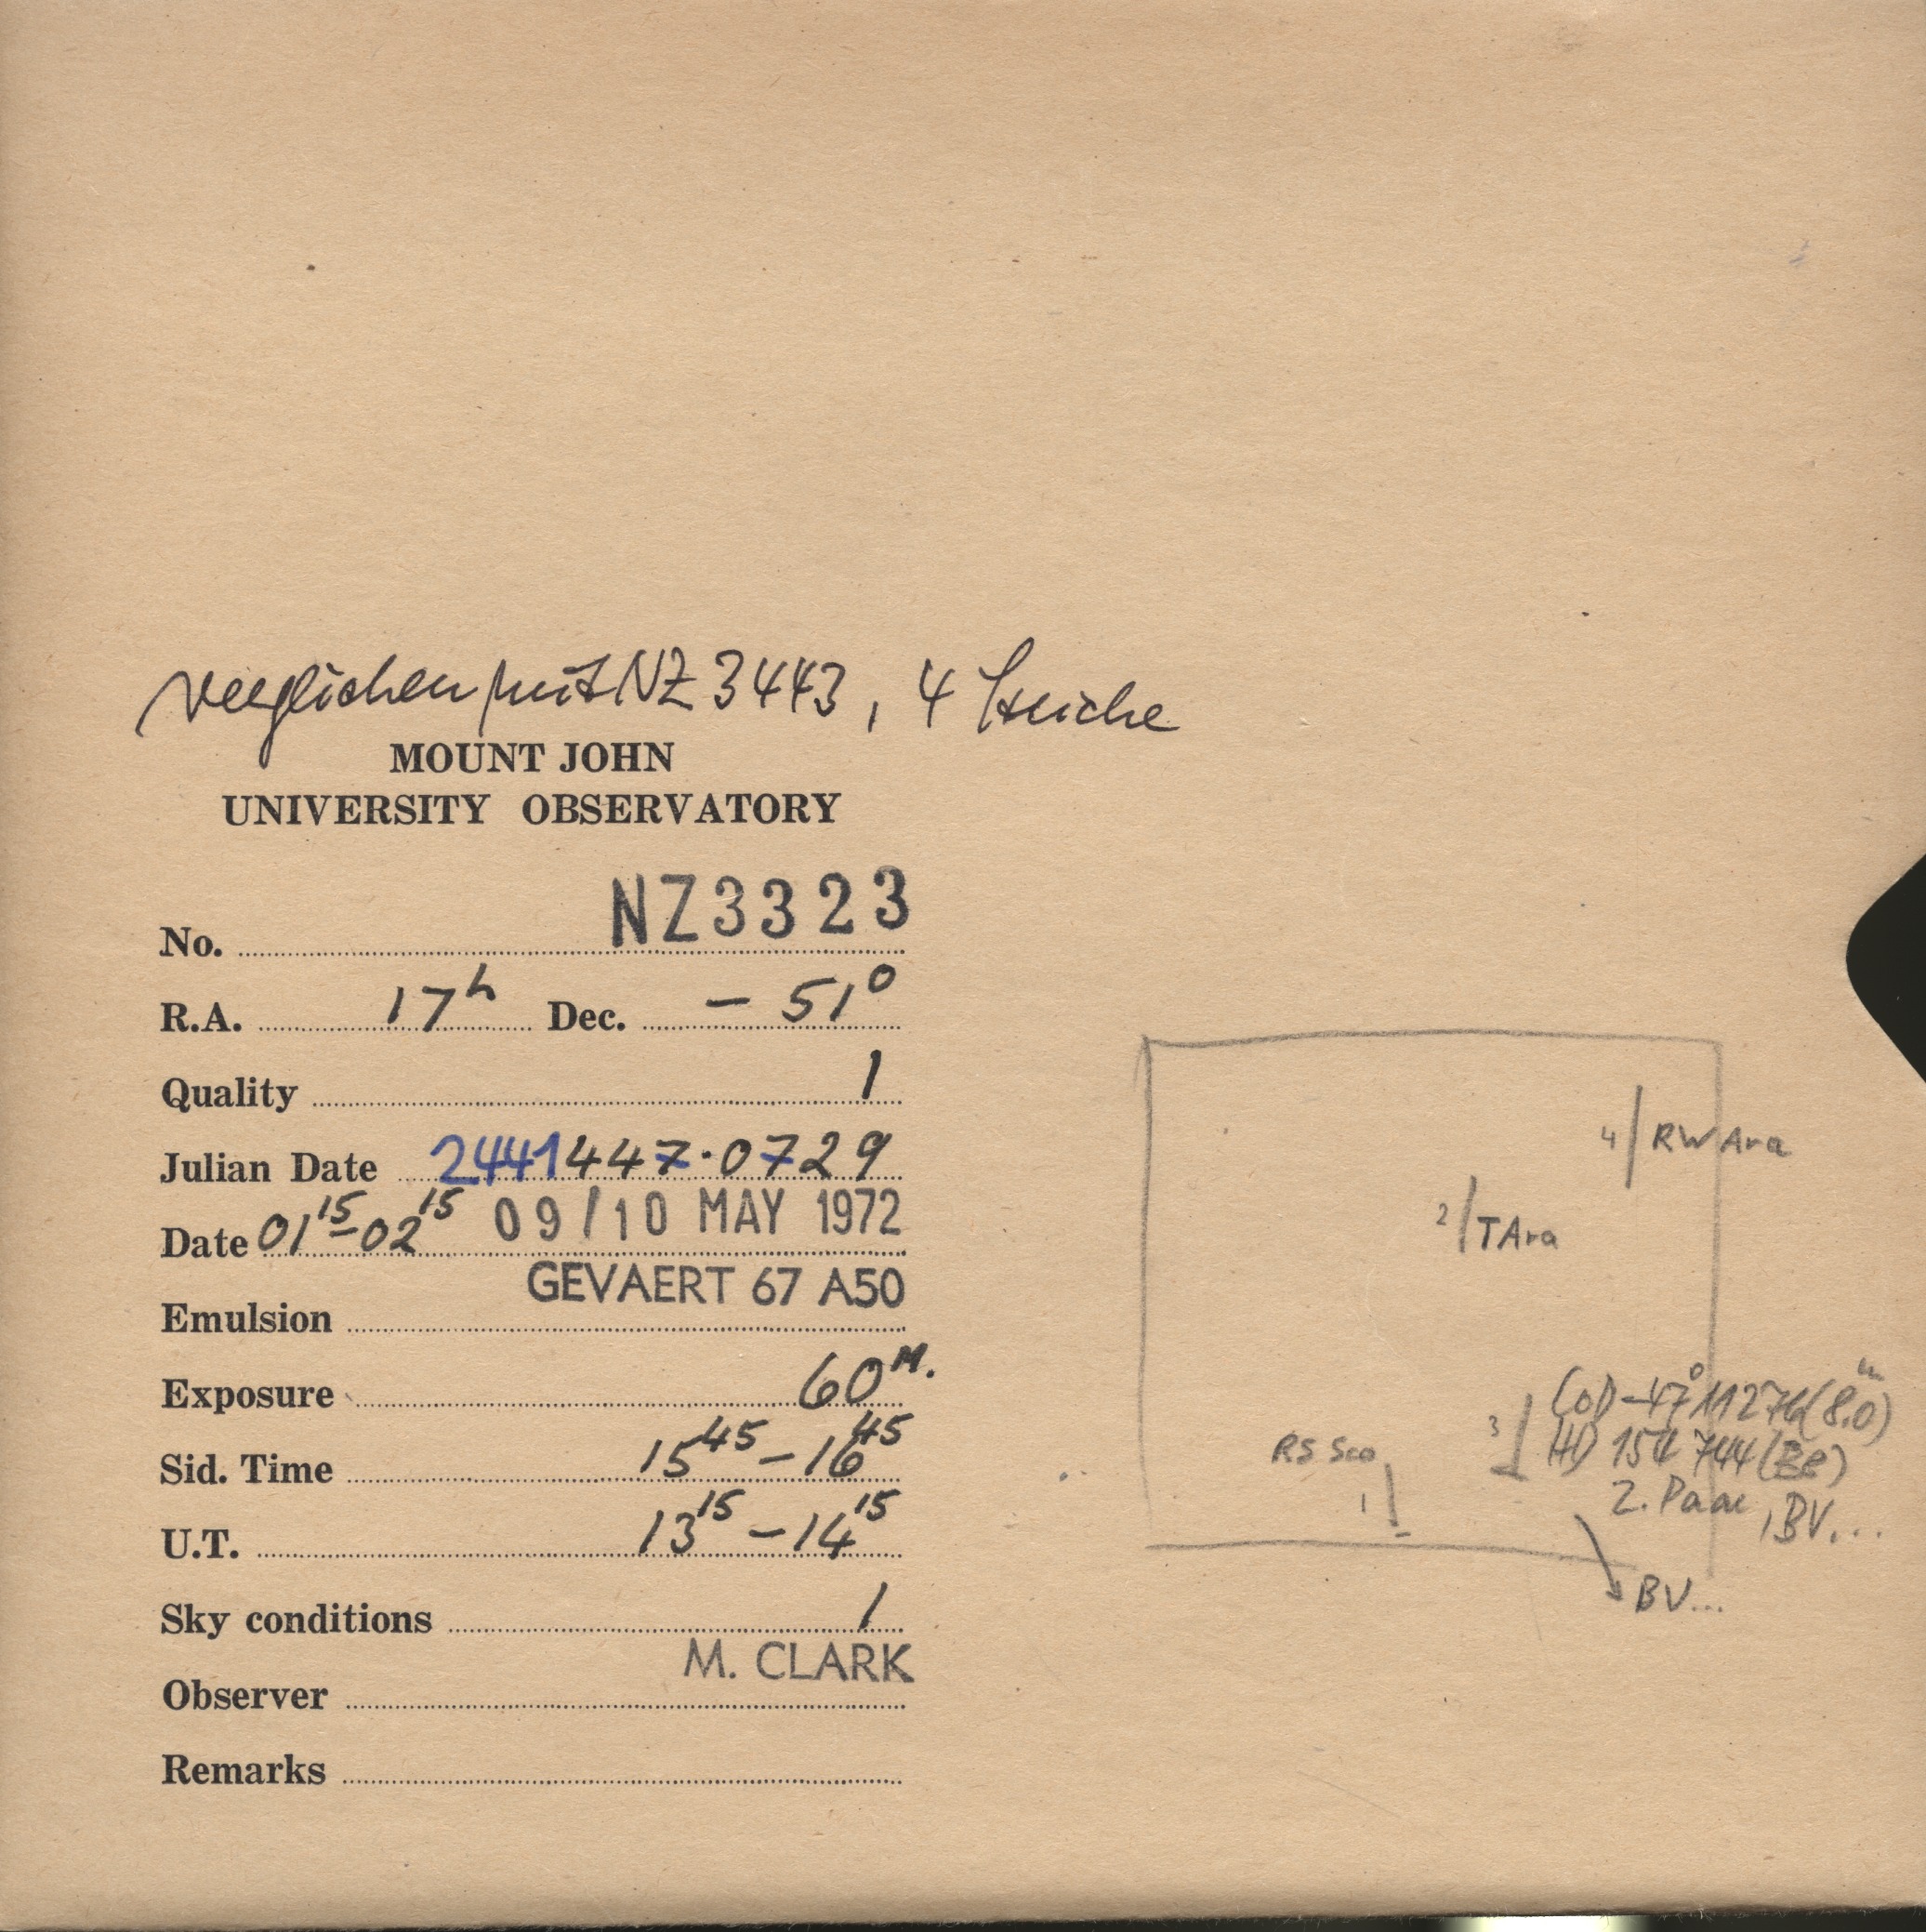 verglichen mit NZ 3443, 4 Striche
MOUNT JOHN
UNIVERSITY OBSERVATORY
No. NZ3323
R.A. 17h Dec. - 51°
Quality 1
Julian Date 2441447.0729
Date 01 15 - 02 15 09/10 MAY 1972
Emulsion GEVAERT 67 A50
Exposure 60 M.
Sid. Time 15 45 - 16 45
U.T. 13 15 - 14 15
Sky conditions 1
Observer M. CLARK
Remarks
4 RW Ara
2 T Ara
3 CoD -47° 11276 (8.0 m)
HD 154744 (B8)
2. Paar, BV...
RS Sco
1
BV...